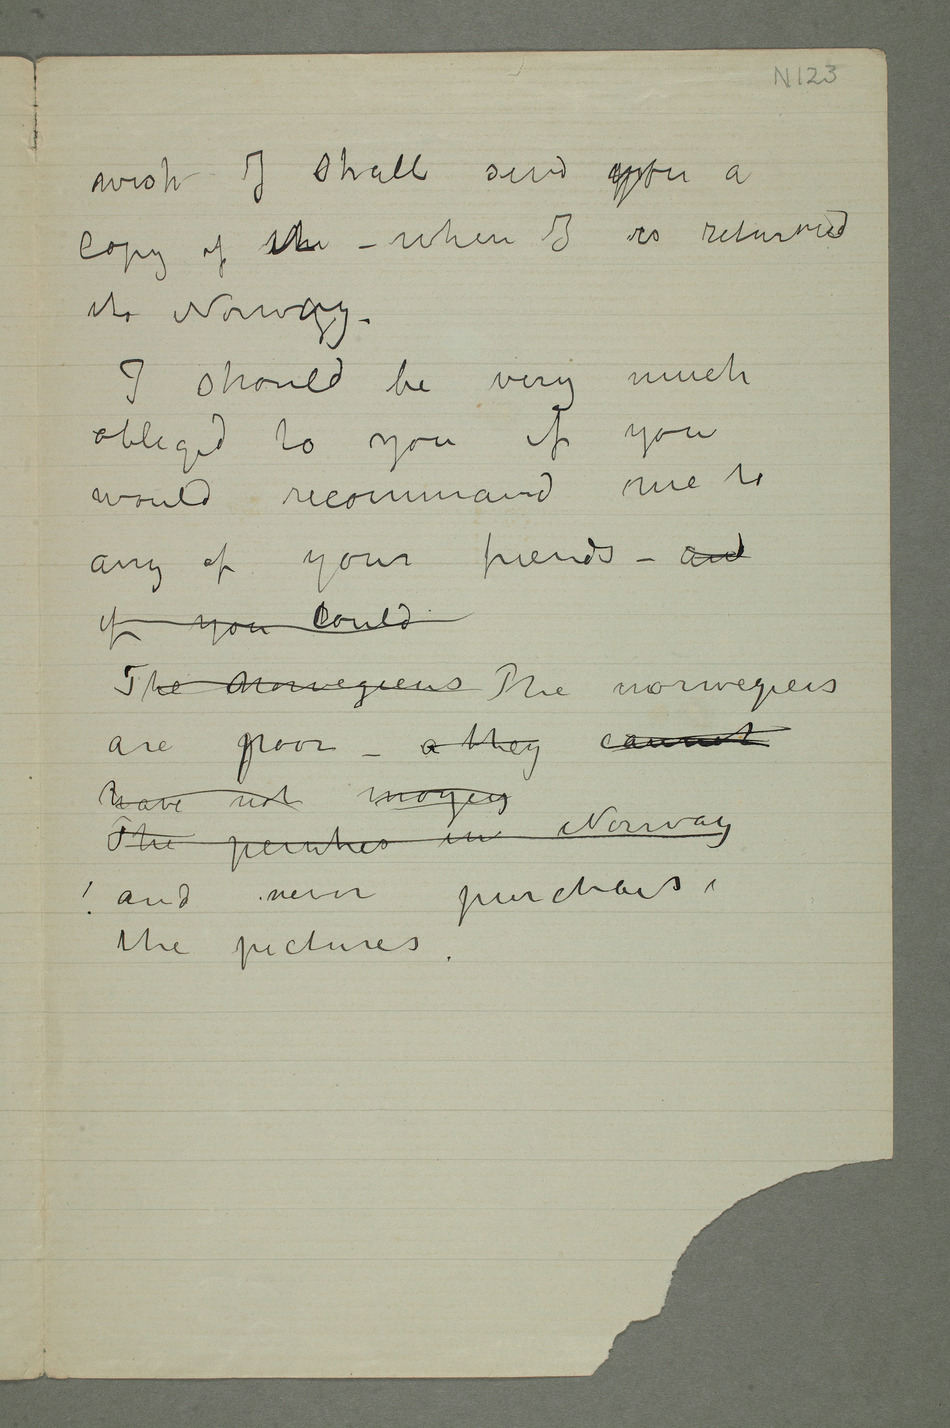 N123
wish I shall send you a
copy of the – when I is returned
to Norway.
I should be very much
obliged to you if you
would recommand me to
any of your friends – and
if you could
The Norwegiens The norwegiens
are poor – a they cannot
have not moyen
The peintres in Norway
! and never purchais
the pictures.